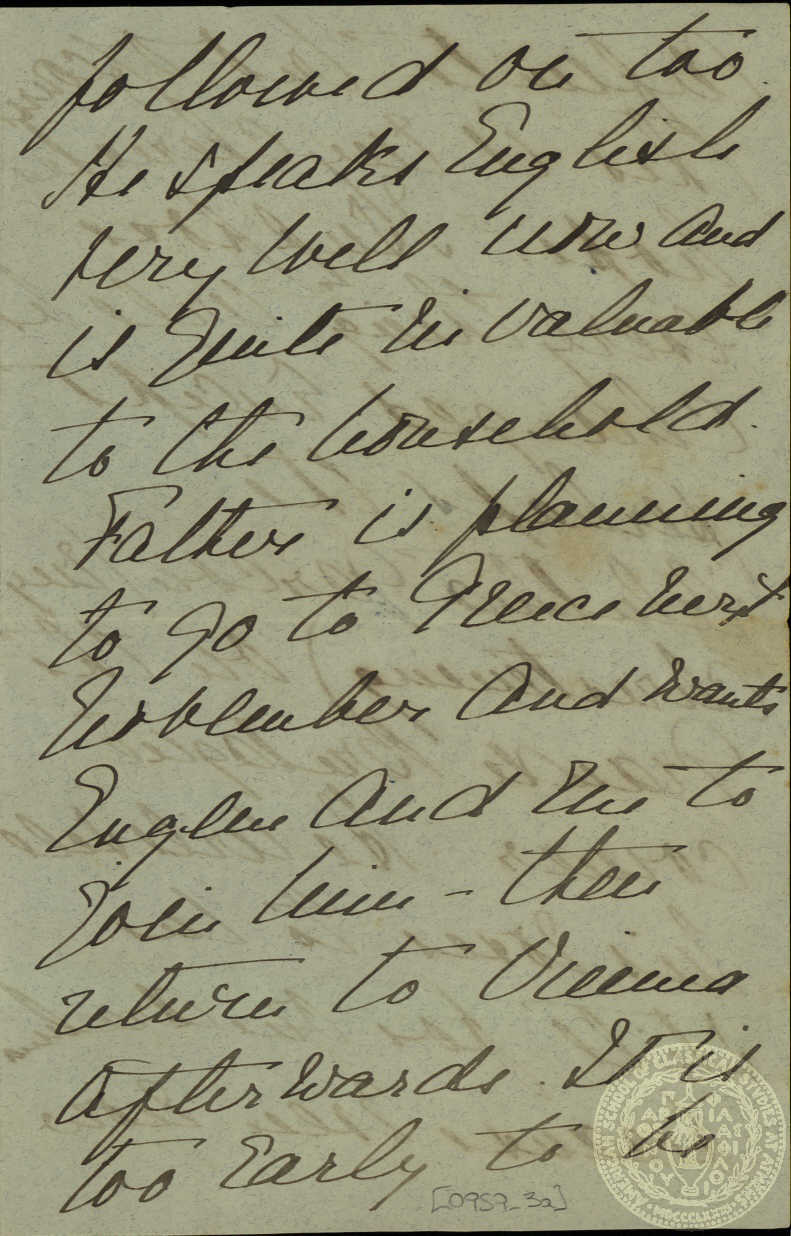 followed on too.
He speaks English
very well now and
is quite invaluable
to the household.
Father is planning
to go to Greece next
November and wants
Eugene and me to
join him - then
return to Vienna
afterwards. It is
too early to be
[0959_3a]